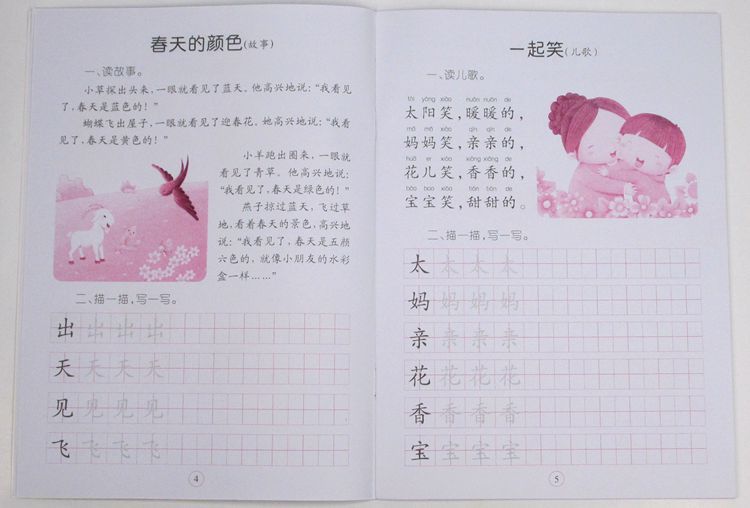 春天的颜色(故事)
一、读故事。
小草探出头来,一眼就看见了蓝天。他高兴地说:“我看见
了,春天是蓝色的!”
蝴蝶飞出屋子,一眼就看见了迎春花。她高兴地说:“我看
见了,春天是黄色的!”
小羊跑出圈来,一眼就
看见了青草。他高兴地说:
“我看见了,春天是绿色的!”
燕子掠过蓝天,飞过草
地,看着春天的景色,高兴地
说:“我看见了,春天是五颜
六色的,就像小朋友的水彩
盒一样……”
二、描一描,写一写。
出 出 出 出
天 天 天 天
见 见 见 见
飞 飞 飞 飞
4
一起笑(儿歌)
一、读儿歌。
tài yáng xiào nuǎn nuǎn de
太阳笑,暖暖的,
mā mā xiào qīn qīn de
妈妈笑,亲亲的,
huā er xiào xiāng xiāng de
花儿笑,香香的,
bǎo bao xiào tián tián de
宝宝笑,甜甜的。
二、描一描,写一写。
太 太 太 太
妈 妈 妈 妈
亲 亲 亲 亲
花 花 花 花
香 香 香 香
宝 宝 宝 宝
5